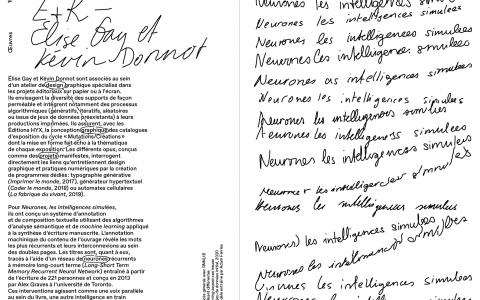 Œuvres
E+K –
Élise Gay et
Kévin Donnot
Élise Gay et Kévin Donnot sont associés au sein
d'un atelier de design graphique spécialisé dans
les projets éditoriaux sur papier ou à l'écran.
Ils envisagent la diversité des supports de façon
perméable et intègrent notamment des processus
algorithmiques (génératifs, itératifs, aléatoires
ou issus de jeux de données préexistants) à leurs
productions imprimées. Ils assurent, avec les
Éditions HYX, la conception graphique des catalogues
d'exposition du cycle « Mutations/Créations »
dont la mise en forme fait écho à la thématique
de chaque exposition. Les différents opus, conçus
comme des projets manifestes, interrogent
directement les liens qu'entretiennent design
graphique et pratiques numériques par la création
de programmes dédiés : typographie générative
(Imprimer le monde, 2017), générateur hypertextuel
(Coder le monde, 2018) ou automates cellulaires
(La fabrique du vivant, 2019).
Pour Neurones, les intelligences simulées,
ils ont conçu un système d'annotation
et de composition textuelle utilisant des algorithmes
d'analyse sémantique et de machine learning appliqué
à la synthèse d'écriture manuscrite. L'annotation
machinique du contenu de l'ouvrage révèle les mots
les plus récurrents et leurs interconnexions au sein
des doubles pages. Les titres sont, quant à eux,
tracés à l'aide d'un réseau de neurones récurrents
à mémoire long-court terme (Long-Short Term
Memory Recurrent Neural Network) entraîné à partir
de l'écriture de 221 personnes et conçu en 2013
par Alex Graves à l'université de Toronto.
Ces interventions agissent comme une voix parallèle
au sein du livre, une autre intelligence en train
Neurones les intelligences simulees
Neurones les intelligences simulees
Neurones les intelligences simulees
Neurones les intelligences simulees
Neurones les intelligences simulees
Neurones les intelligences simulees
Neurones les intelligences simulees
Neurones les intelligences simulees
Neurones les intelligences simulees
Neurones les intelligences simulees
Neurones les intelligences simulees
Neurones les intelligences simulees
Neurones les intelligences simulees
Neurones les intelligences simulees
Neurones les intelligences simulees